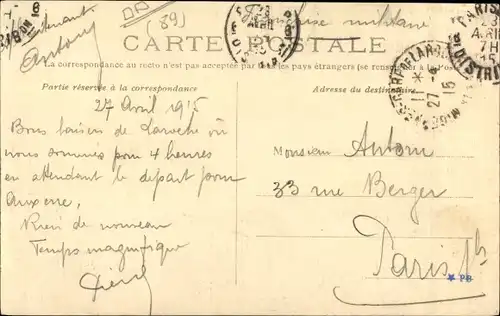 (89)
militaire
CARTE POSTALE
La correspondance au recto n'est pas acceptée par tous les pays étrangers (se renseigner à la Poste)
Partie réservée à la correspondance
Adresse du destinataire
27 Avril 1915
Bons baisers de Laroche où
nous sommes pour 4 heures
en attendant le départ pour
Auxerre,
Rien de nouveau
Temps magnifique
Monsieur Antony
33 rue Berger
Paris 1er
* PB
PARIS
AVRIL
7H
15
DISTRI
GARE DE LAROCHE
11
27 -4
15